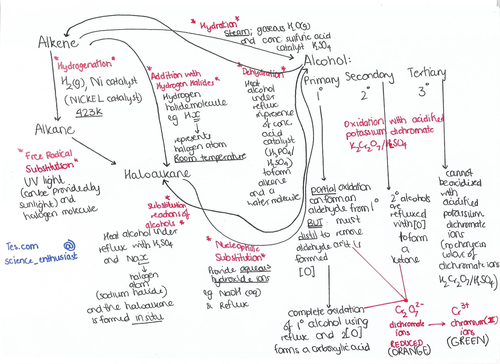 * Hydration *
steam; gaseous H2O(g)
and conc sulfuric acid
catalyst H2SO4
Alkene
* Hydrogenation *
H2(g), Ni catalyst
(NICKEL catalyst)
423K
Alkane
* Free Radical
Substitution *
UV light
(can be provided by
sunlight) and
halogen molecule
* Addition with
Hydrogen Halides *
Hydrogen
halide molecule
eg HX
represents
halogen atom
Room temperature
* Dehydration *
Heat
alcohol
under
reflux
in presence
of conc
acid
catalyst
(H3PO4/
H2SO4)
to form
alkene
and a
water molecule
Haloalkane
* Substitution
reactions of
alcohols *
Heat alcohol under
reflux with H2SO4
and NaX
halogen
atom
(sodium halide)
and the haloalkane
is formed in situ
* Nucleophilic
Substitution *
Provide aqueous
hydroxide ions
eg NaOH (aq)
& Reflux
Alcohol:
Primary Secondary Tertiary
1° 2° 3°
Oxidation with acidified
potassium dichromate
K2Cr2O7/H2SO4
partial oxidation
can form an
aldehyde from 1°
BUT must
distil to remove
aldehyde as it is
formed
[O]
complete oxidation
of 1° alcohol using
reflux and 2[O]
forms a carboxylic acid
2° alcohols
are
refluxed
with [O]
to form
a
ketone
cannot
be oxidised
with
acidified
potassium
dichromate
(no change in
colour of
dichromate ions
K2Cr2O7/H2SO4)
Cr2O7 2-
dichromate
ions
REDUCED
(ORANGE)
Cr3+
chromium (III)
ions
(GREEN)
Tes.com
science_enthusiast